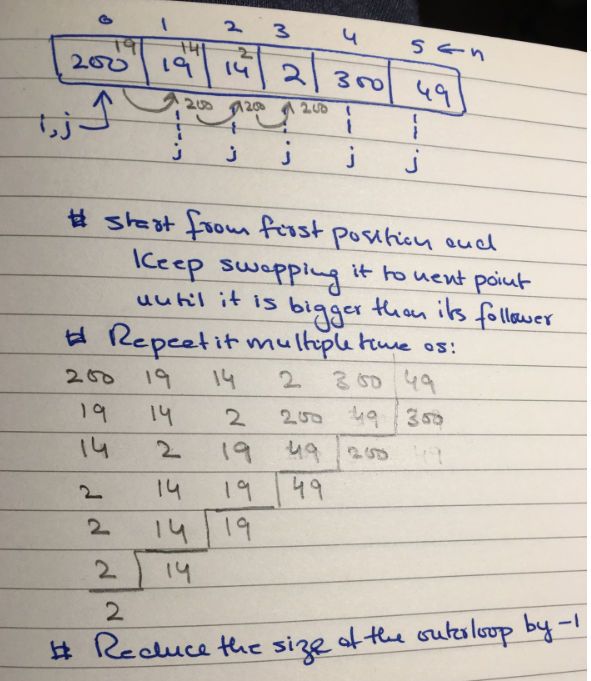 0 1 2 3 4 5 ← n
19 14 2
200 19 14 2 300 49
200 200 200
i,j
j j j j j
# start from first position and
Keep swapping it to next point
until it is bigger than its follower
# Repeat it multiple time as:
200 19 14 2 300 49
19 14 2 200 49 300
14 2 19 49 200 49
2 14 19 49
2 14 19
2 14
2
# Reduce the size of the outerloop by -1